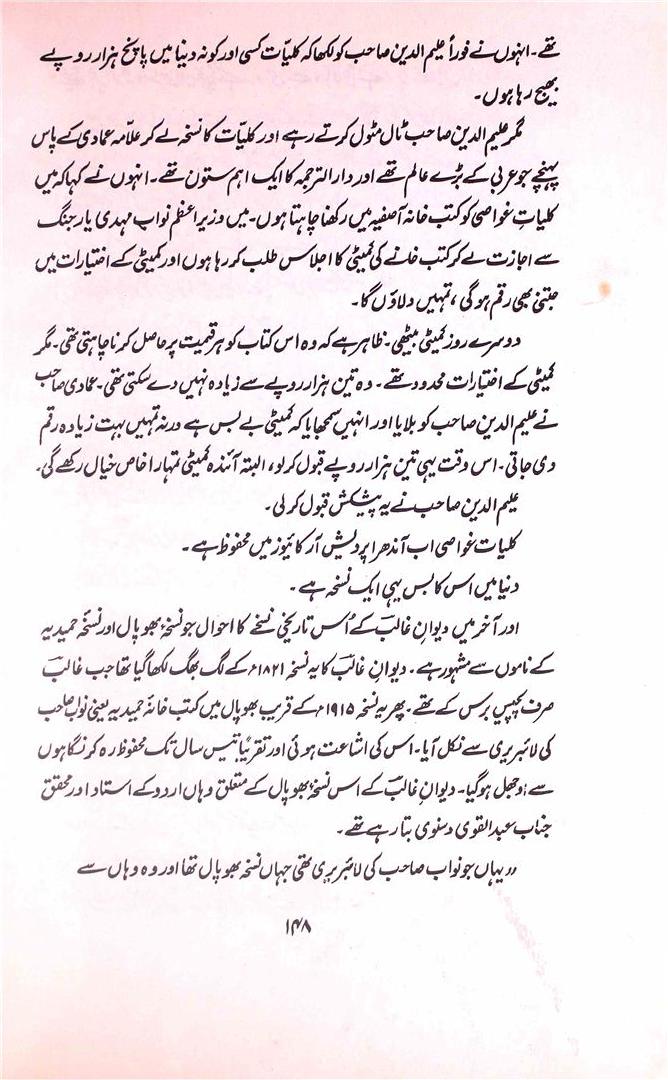 تھے۔ انہوں نے فوراً علیم الدین صاحب کو لکھا کہ کلیات کسی اور کو نہ دنیا میں پانچ ہزار روپے
بھیج رہا ہوں۔
مگر علیم الدین صاحب ٹال مٹول کرتے رہے اور کلیّات کا نسخہ لے کر علاّمہ عمادی کے پاس
پہنچے جو عربی کے بڑے عالم تھے اور دارالترجمہ کا ایک اہم ستون تھے۔ انہوں نے کہا کہ میں
کلیاتِ غواصی کو کتب خانہ آصفیہ میں رکھنا چاہتا ہوں۔ میں وزیراعظم نواب مہدی یار جنگ
سے اجازت لے کر کتب خانے کی کمیٹی کا اجلاس طلب کر رہا ہوں اور کمیٹی کے اختیارات میں
جتنی بھی رقم ہوگی، تمہیں دلاؤں گا۔
دوسرے روز کمیٹی بیٹھی۔ ظاہر ہے کہ وہ اس کتاب کو ہر قیمت پر حاصل کرنا چاہتی تھی۔ مگر
کمیٹی کے اختیارات محدود تھے۔ وہ تین ہزار روپے سے زیادہ نہیں دے سکتی تھی۔ عمادی صاحب
نے علیم الدین صاحب کو بلایا اور انہیں سمجھایا کہ کمیٹی بے بس ہے ورنہ تمہیں بہت زیادہ رقم
دی جاتی۔ اس وقت یہی تین ہزار روپے قبول کر لو، البتہ آئندہ کمیٹی تمہارا خاص خیال رکھے گی۔
علیم الدین صاحب نے یہ پیشکش قبول کر لی۔
کلیات غواصی اب آندھرا پردیش آرکائیوز میں محفوظ ہے۔
دنیا میں اس کا بس یہی ایک نسخہ ہے۔
اور آخر میں دیوانِ غالبؔ کے اُس تاریخی نسخے کا احوال جو نسخۂ بھوپال اور نسخۂ حمیدیہ
کے ناموں سے مشہور ہے۔ دیوانِ غالبؔ کا یہ نسخہ ۱۸۲۱ء کے لگ بھگ لکھا گیا تھا جب غالبؔ
صرف پچیس برس کے تھے۔ پھر یہ نسخہ ۱۹۱۵ء کے قریب بھوپال میں کتب خانۂ حمیدیہ یعنی نواب صاحب
کی لائبریری سے نکل آیا۔ اس کی اشاعت ہوئی اور تقریباً تیس سال تک محفوظ رہ کر نگاہوں
سے اوجھل ہوگیا۔ دیوانِ غالبؔ کے اس نسخۂ بھوپال کے متعلق وہاں اردو کے استاد اور محقق
جناب عبدالقوی دسنوی بتا رہے تھے۔
"یہاں جو نواب صاحب کی لائبریری تھی جہاں نسخہ بھوپال تھا اور وہ وہاں سے
۱۴۸